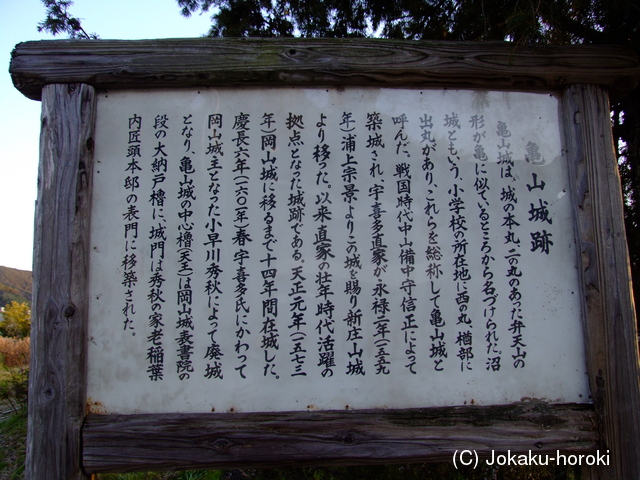 亀山城跡
亀山城は、城の本丸、二の丸のあった弁天山の
形が亀に似ているところから名づけられた。沼
城ともいう。小学校の所在地に西の丸、楢部に
出丸があり、これらを総称して亀山城と
呼んだ。戦国時代中山備中守信正によって
築城され、宇喜多直家が永禄二年(一五五九
年)浦上宗景よりこの城を賜り新庄山城
より移った。以来直家の壮年時代活躍の
拠点となった城跡である。天正元年(一五七三
年)岡山城に移るまで十四年間在城した。
慶長六年(一六〇一年)春、宇喜多氏にかわって
岡山城主となった小早川秀秋によって廃城
となり、亀山城の中心櫓(天主)は岡山城表書院の
段の大納戸櫓に、城門は秀秋の家老稲葉
内匠頭本邸の表門に移築された。
(C) Jokaku-horoki